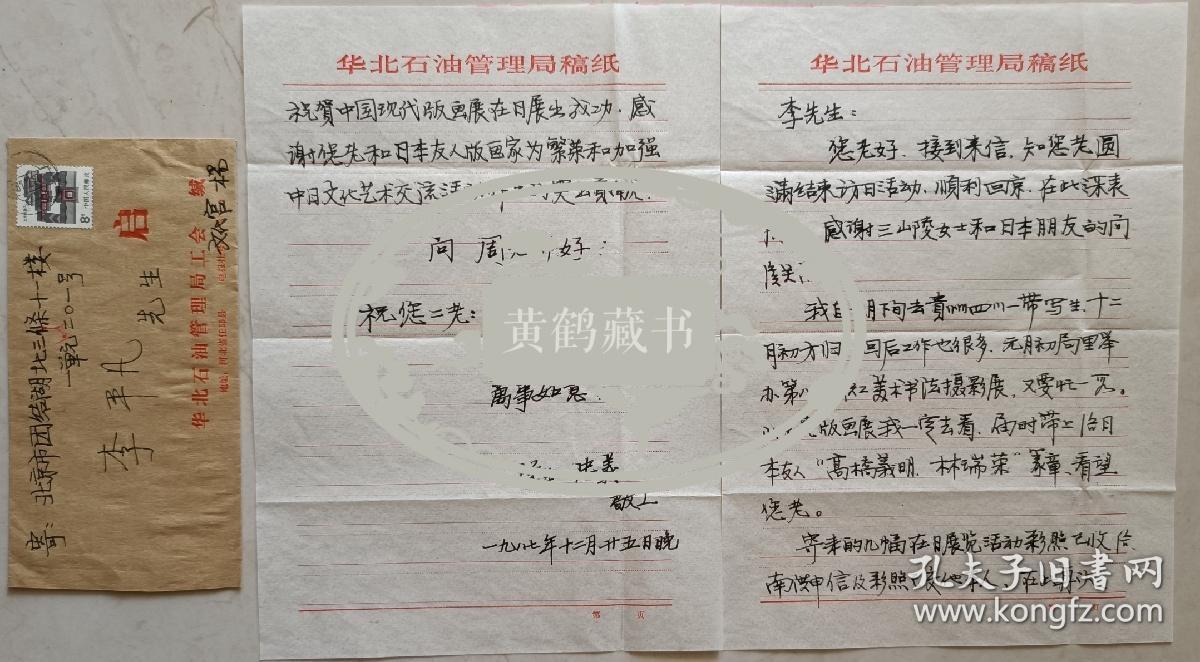 寄：北京市团结湖北三條十一楼
一單元二〇一号
李平凡
先生
启
华北石油管理局工会 缄
文化宫 杨
8分
中国人民邮政
华北石油管理局稿纸
李先生：
您老好。接到来信，知您老圆
满结束访日活动，順利回京，在此深表
感谢三山陵女士和日本朋友的问
月下旬去貴州四川一带写生，十二
月初方归 回后工作也很多，元月初局里举
办第 美术书法摄影展，又要忙一
版画展我一定去看，届时带上给日
本友人“高橋義明、林瑞荣”篆章，看望
您老。
寄来的几幅在日展览活动彩照已收
信及彩照
第 页
华北石油管理局稿纸
祝賀中国现代版画展在日展出成功，感
谢您老和日本友人版画家为繁荣和加强
中日文化艺术交流活 貢献。
问 周 好：
祝您二老：
萬事如意
敬上
一九八七年十二月廿五日晚
第 页
黄鹤藏书
孔夫子旧书网
www.kongfz.com